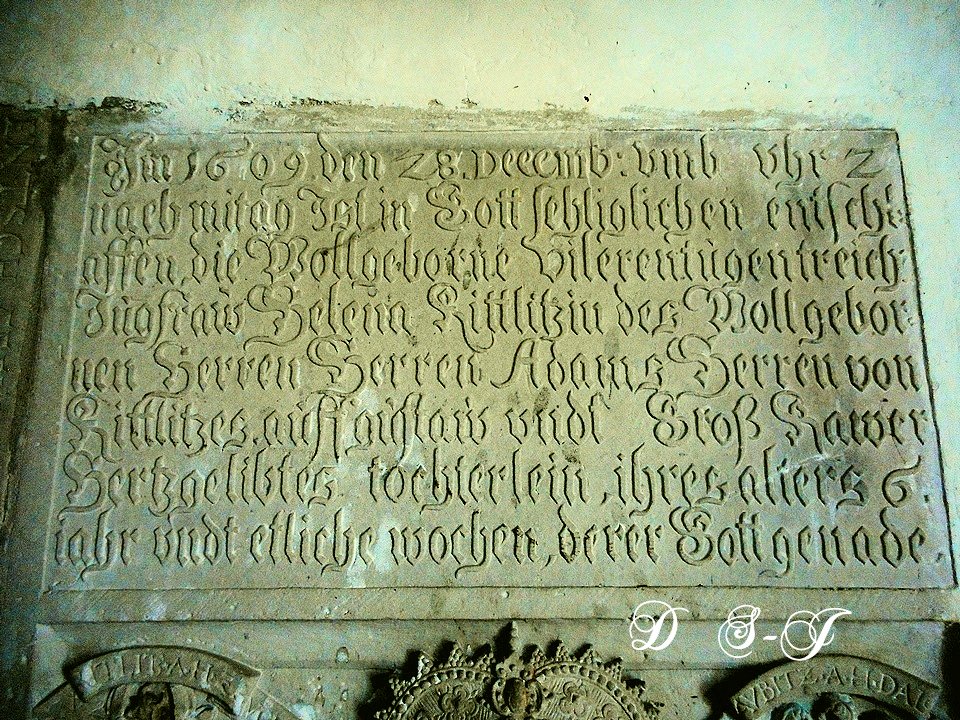 Im 1609. den 28. Decemb: vmb vhr 2
nach mitag Ist in Gott sehliglichen entschl:
affen, die Wollgeborne Vilerentugentreich:
Jugfraw Helena Kittlitzin des Wollgebor:
nen Herren Herren Adams Herren von
Kittlitzes, auff gustaw vndt Groß Kawer
Hertzgelibtes tochterlein, ihres alters 6.
iahr vndt etliche wochen, derer Gott genade.
D S-J